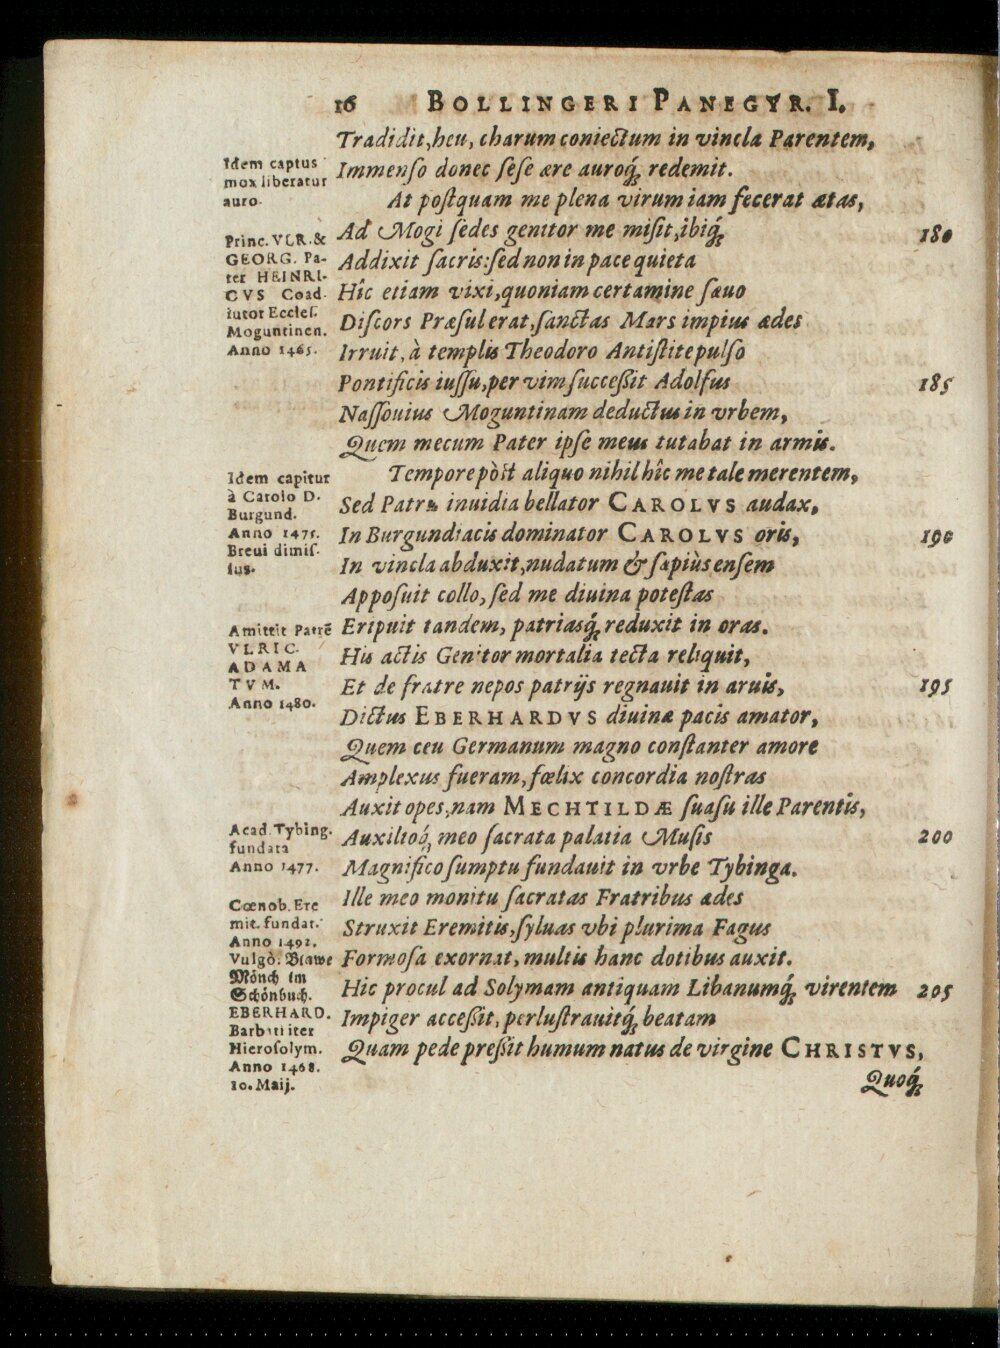 16 BOLLINGERI PANEGYR. I.
Tradidit, heu, charum coniectum in vincla Parentem,
Idem captus
mox liberatur
auro.
Immenso donec sese ære auroq́; redemit.
At postquam me plena virum iam fecerat ætas,
Ad Mogi sedes genitor me misit, ibiq́; 180
Princ. VLR. &
GEORG. Pa-
ter HEINRI-
CVS Coad-
iutor Eccles.
Moguntinen.
Anno 1465.
Addixit sacris: sed non in pace quieta
Hîc etiam vixi, quoniam certamine sæuo
Discors Præsul erat, sanctas Mars impius ædes
Irruit, à templis Theodoro Antistite pulso
Pontificis iussu, per vim successit Adolfus 185
Nassouius Moguntinam deductus in vrbem,
Quem mecum Pater ipse meus tutabat in armis.
Tempore pòst aliquo nihil hîc me tale merentem,
Idem capitur
à Carolo D.
Burgund.
Anno 1475.
Breui dimis-
sus.
Sed Patris inuidia bellator CAROLVS audax,
In Burgundiacis dominator CAROLVS oris, 190
In vincla abduxit, nudatum & sæpiùs ensem
Apposuit collo, sed me diuina potestas
Eripuit tandem, patriasq́; reduxit in oras.
Amittit Patrē
VLRIC.
ADAMA
TVM.
Anno 1480.
His actis Genitor mortalia tecta reliquit,
Et de fratre nepos patrijs regnauit in aruis, 195
Dictus EBERHARDVS diuinæ pacis amator,
Quem ceu Germanum magno constanter amore
Amplexus fueram, fœlix concordia nostras
Auxit opes, nam MECHTILDÆ suasu ille Parentis,
Acad. Tybing.
fundata
Anno 1477.
Auxilioq́; meo sacrata palatia Musis 200
Magnifico sumptu fundauit in vrbe Tybinga.
Ille meo monitu sacratas Fratribus ædes
Cœnob. Ere
mit. fundat.
Anno 1492.
Vulgò. Blawe
Mönch im
Schönbuch.
Struxit Eremitis, syluas vbi plurima Fagus
Formosa exornat, multis hanc dotibus auxit.
Hic procul ad Solymam antiquam Libanumq́; virentem 205
EBERHARD.
Barbati iter
Hierosolym.
Anno 1468.
10. Maij.
Impiger accessit, perlustrauitq́; beatam
Quam pede pressit humum natus de virgine CHRISTVS,
Quoq́;